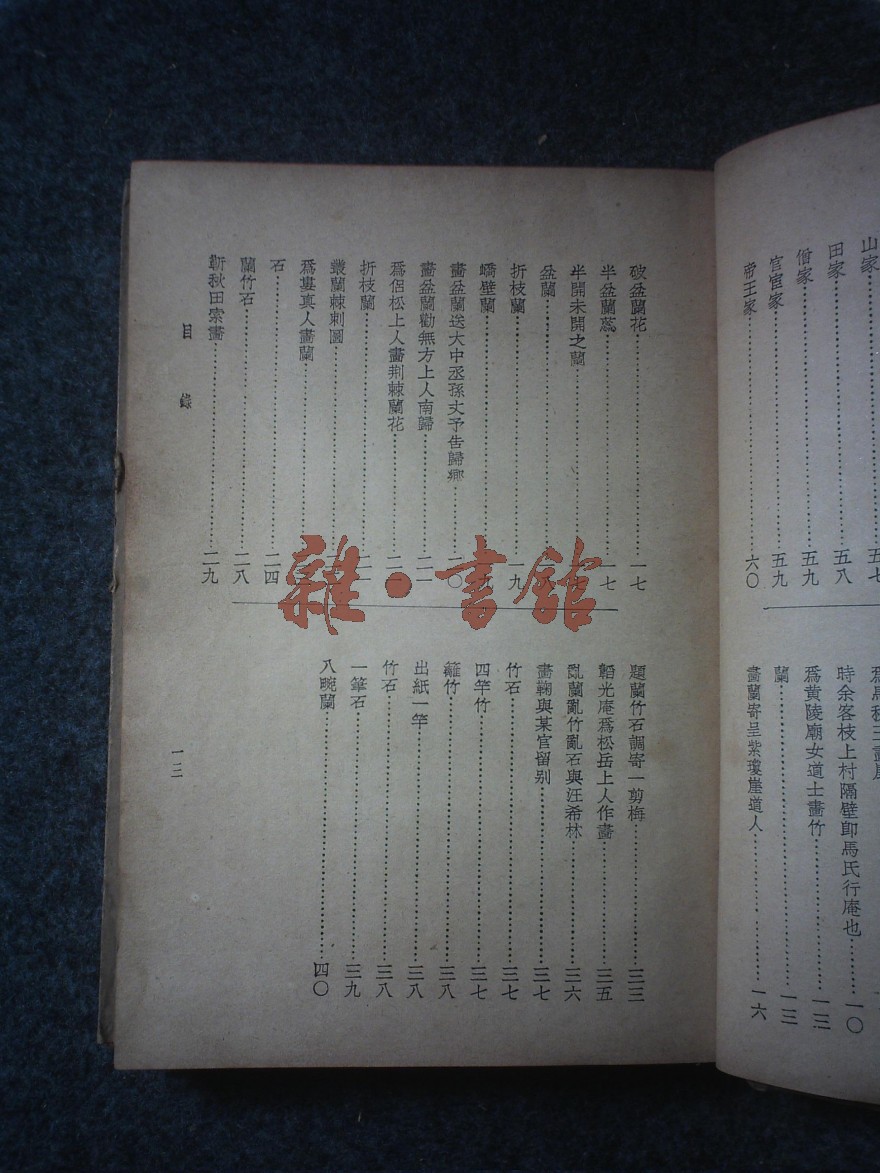 田家……五八
僧家……五九
官宦家……五九
帝王家……六〇
時余客枝上村隔壁卽馬氏行庵也……一〇
爲黄陵廟女道士畫竹……一三
蘭……一三
畫蘭寄呈紫瓊崖道人……一六
破盆蘭花……一七
半盆蘭蕊……一七
半開未開之蘭
盆蘭
折枝蘭……一九
嶠壁蘭
畫盆蘭送大中丞孫丈予告歸鄉……二〇
畫盆蘭勸無方上人南歸……二一
爲侶松上人畫荆棘蘭花
折枝蘭
叢蘭棘刺圖
爲婁真人畫蘭
石……二四
蘭竹石……二八
靳秋田索畫……二九
題蘭竹石調寄一剪梅……三三
韜光庵爲松岳上人作畫……三五
亂蘭亂竹亂石與汪希林……三六
畫鞠與某官留别……三七
竹石……三七
四竿竹……三七
籬竹……三八
出紙一竿……三八
竹石……三八
一筆石……三九
八畹蘭……四〇
目錄
一三
雜·書館